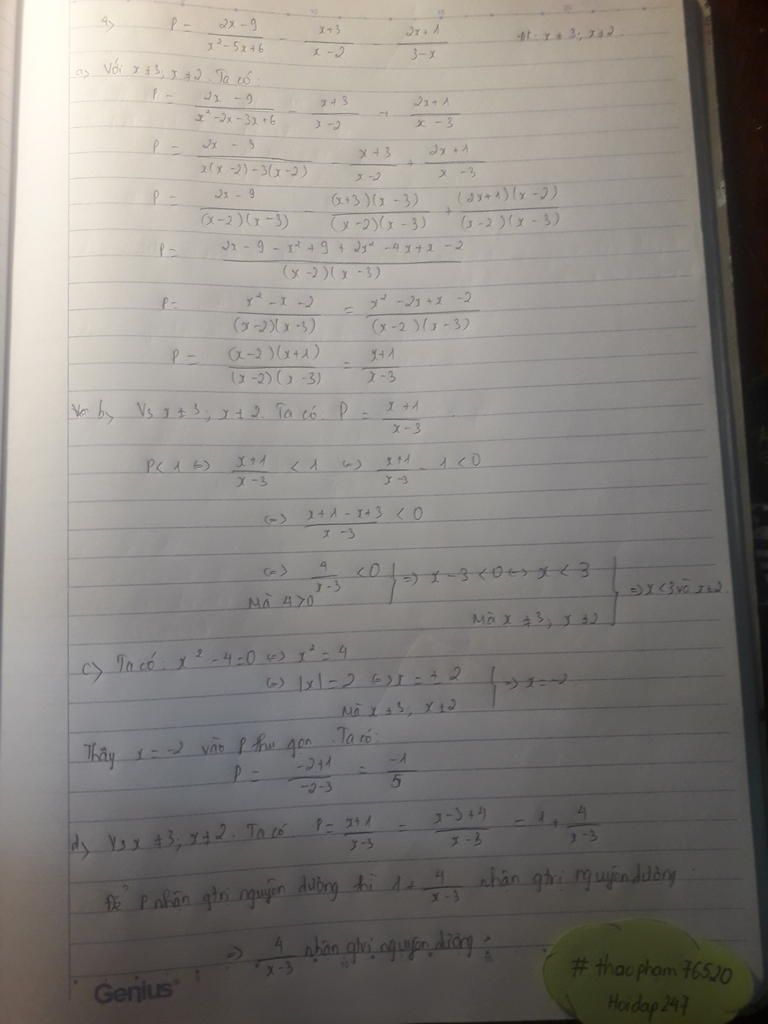 4) P = \frac{2x-9}{x^2-5x+6} - \frac{x+3}{x-2} - \frac{2x+1}{3-x} x ≠ 3; x ≠ 2
a) Với x ≠ 3; x ≠ 2. Ta có:
P = \frac{2x-9}{x^2-2x-3x+6} - \frac{x+3}{x-2} + \frac{2x+1}{x-3}
P = \frac{2x-9}{x(x-2)-3(x-2)} - \frac{x+3}{x-2} + \frac{2x+1}{x-3}
P = \frac{2x-9}{(x-2)(x-3)} - \frac{(x+3)(x-3)}{(x-2)(x-3)} + \frac{(2x+1)(x-2)}{(x-2)(x-3)}
P = \frac{2x-9-x^2+9+2x^2-4x+x-2}{(x-2)(x-3)}
P = \frac{x^2-x-2}{(x-2)(x-3)} = \frac{x^2-2x+x-2}{(x-2)(x-3)}
P = \frac{(x-2)(x+1)}{(x-2)(x-3)} = \frac{x+1}{x-3}
b) Vs x ≠ 3; x ≠ 2. Ta có: P = \frac{x+1}{x-3}
P < 1 <=> \frac{x+1}{x-3} < 1 <=> \frac{x+1}{x-3} - 1 < 0
<=> \frac{x+1-x+3}{x-3} < 0
<=> \frac{4}{x-3} < 0 } => x-3 < 0 <=> x < 3 } => x < 3 và x ≠ 2
Mà 4 > 0
Mà x ≠ 3; x ≠ 2
c) Ta có: x^2 - 4 = 0 <=> x^2 = 4
<=> |x| = 2 <=> x = ± 2 } => x = -2
Mà x ≠ 3, x ≠ 2
Thay x = -2 vào P thu gọn. Ta có:
P = \frac{-2+1}{-2-3} = \frac{-1}{5}
d) Vs x ≠ 3; x ≠ 2. Ta có P = \frac{x+1}{x-3} = \frac{x-3+4}{x-3} = 1 + \frac{4}{x-3}
Để P nhận gtri nguyên dương thì 1 + \frac{4}{x-3} nhận gtri nguyên dương
=> \frac{4}{x-3} nhận gtri nguyên dương
Genius
# thaopham76520
Hoidap247